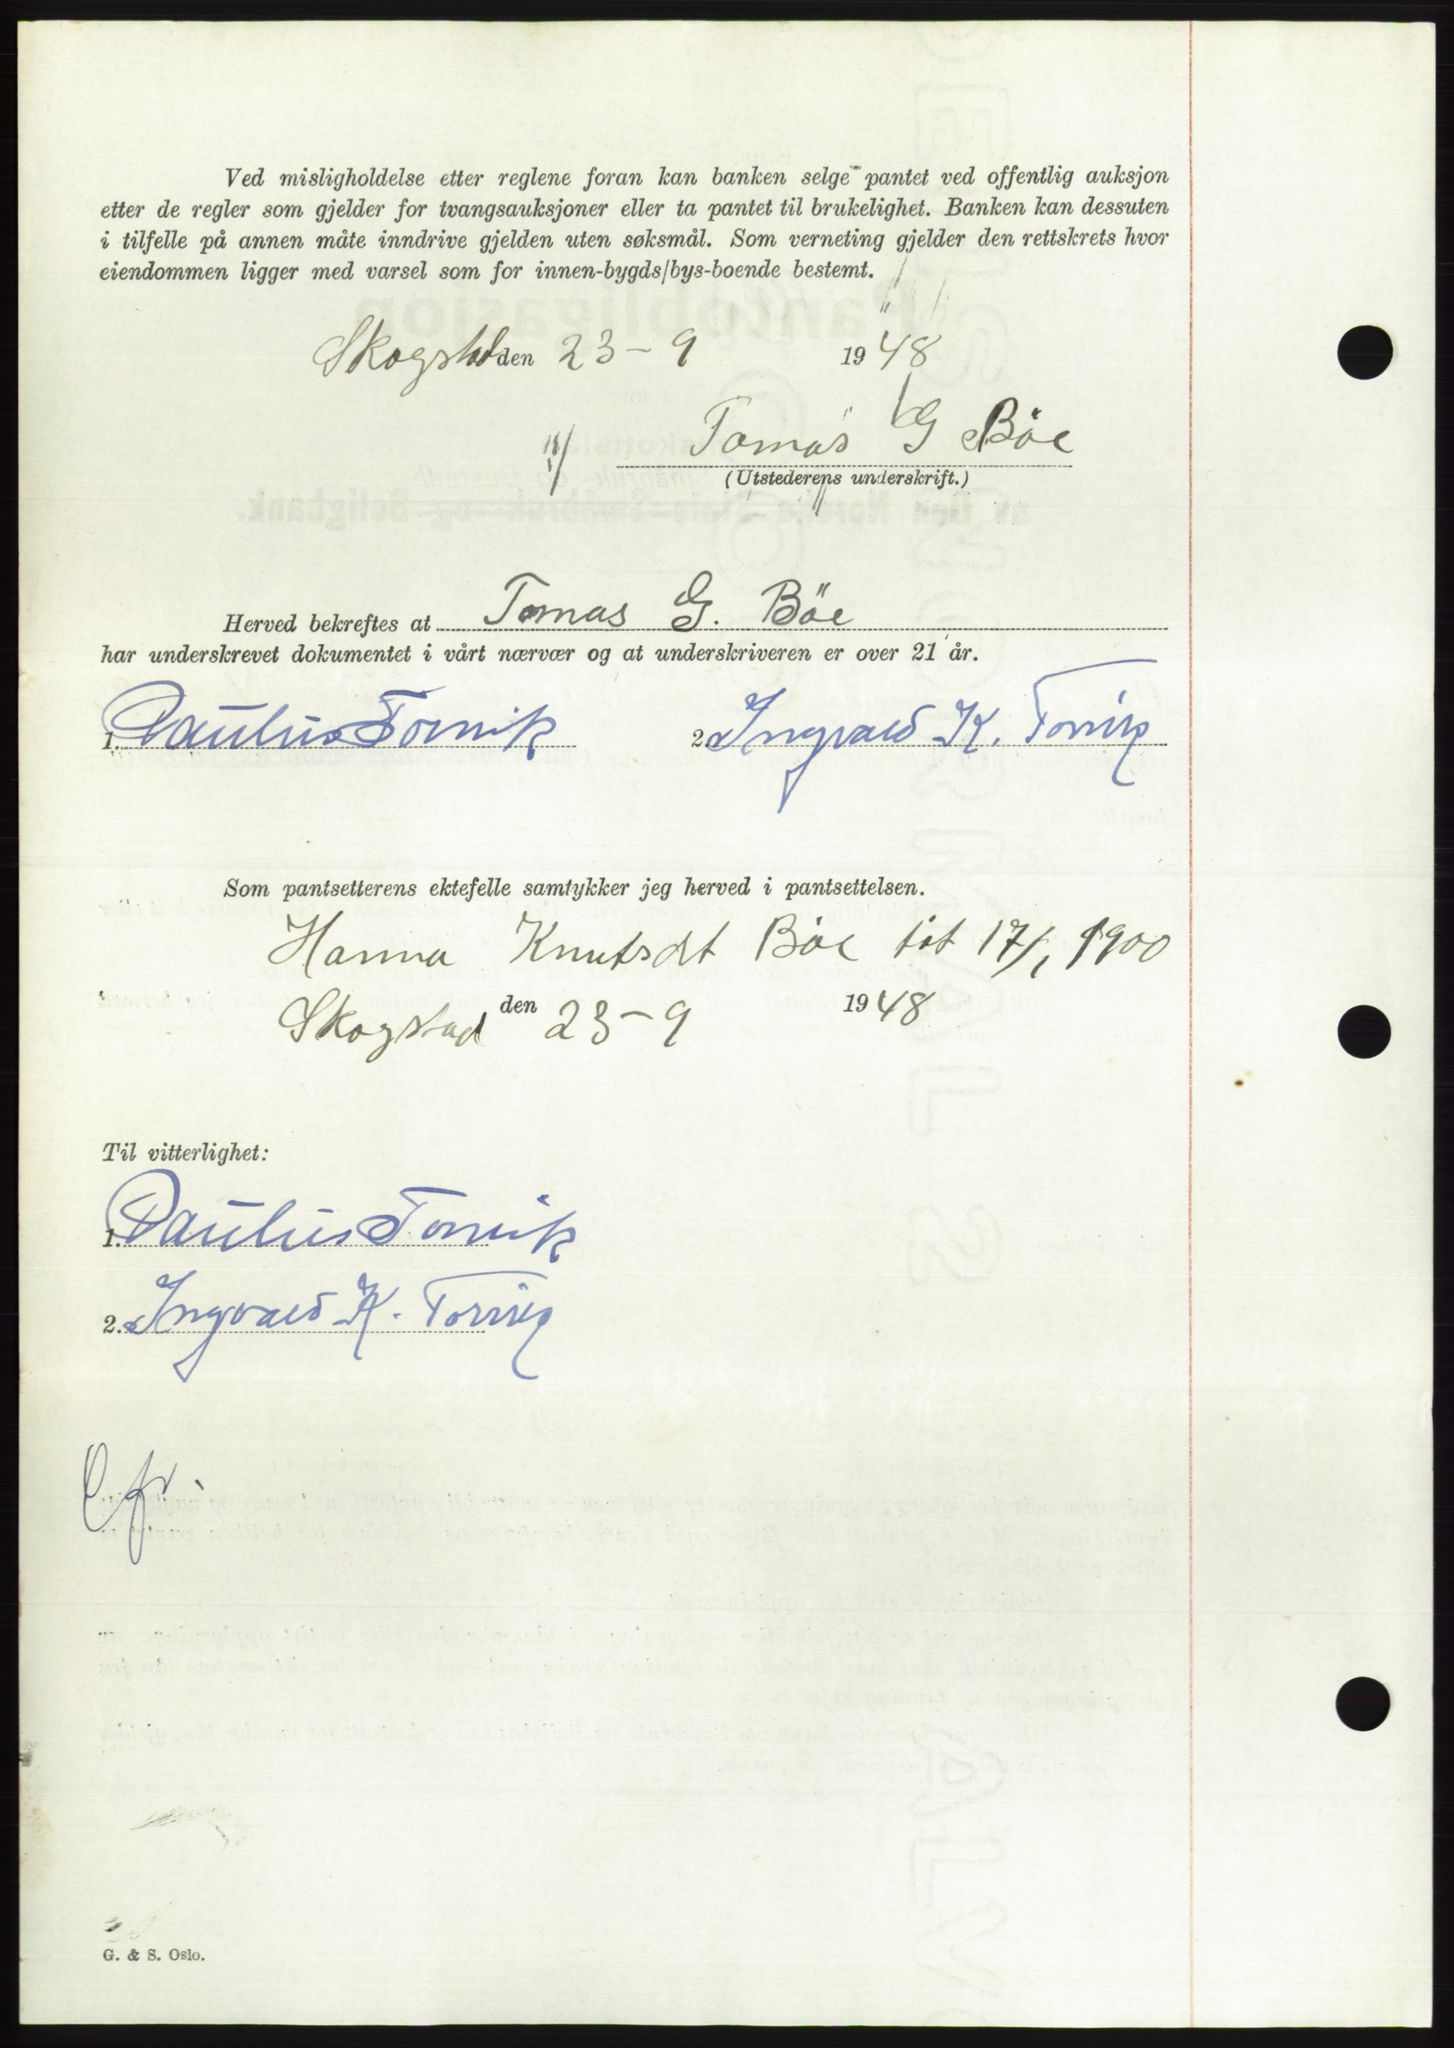 Ved misligholdelse etter reglene foran kan banken selge pantet ved offentlig auksjon
etter de regler som gjelder for tvangsauksjoner eller ta pantet til brukelighet. Banken kan dessuten
i tilfelle på annen måte inndrive gjelden uten søksmål. Som verneting gjelder den rettskrets hvor
eiendommen ligger med varsel som for innen-bygds/bys-boende bestemt.
Skogstad den 23-9 1948
Tomas G Böe
(Utstederens underskrift.)
Herved bekreftes at Tomas G. Böe
har underskrevet dokumentet i vårt nærvær og at underskriveren er over 21 år.
1. Paulus Torvik 2. Ingvald K. Torvik
Som pantsetterens ektefelle samtykker jeg herved i pantsettelsen.
Hanna Knutsdt Böe föt 17/1 1900
Skogstad den 23-9 1948
Til vitterlighet:
1. Paulus Torvik
2. Ingvald K. Torvik
G. & S. Oslo.